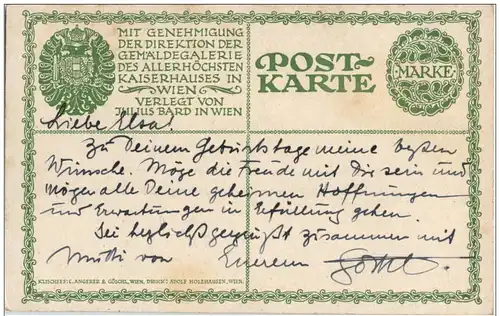 MIT GENEHMIGUNG
DER DIREKTION DER
GEMÄLDEGALERIE
DES ALLERHÖCHSTEN
KAISERHAUSES IN
WIEN
VERLEGT VON
JULIUS BARD IN WIEN
POST-
KARTE
MARKE
Liebe Ilsa!
Zu Deinem Geburtstage meine besten
Wünsche. Möge die Freude mit Dir sein und
mögen alle Deine geheimen Hoffnungen
und Erwartungen in Erfüllung gehen.
Sei herzlichst gegrüßt zusammen mit
Mutti von Euerem
KLISCHEES: C. ANGERER & GÖSCHL, WIEN. DRUCK: ADOLF HOLZHAUSEN, WIEN.